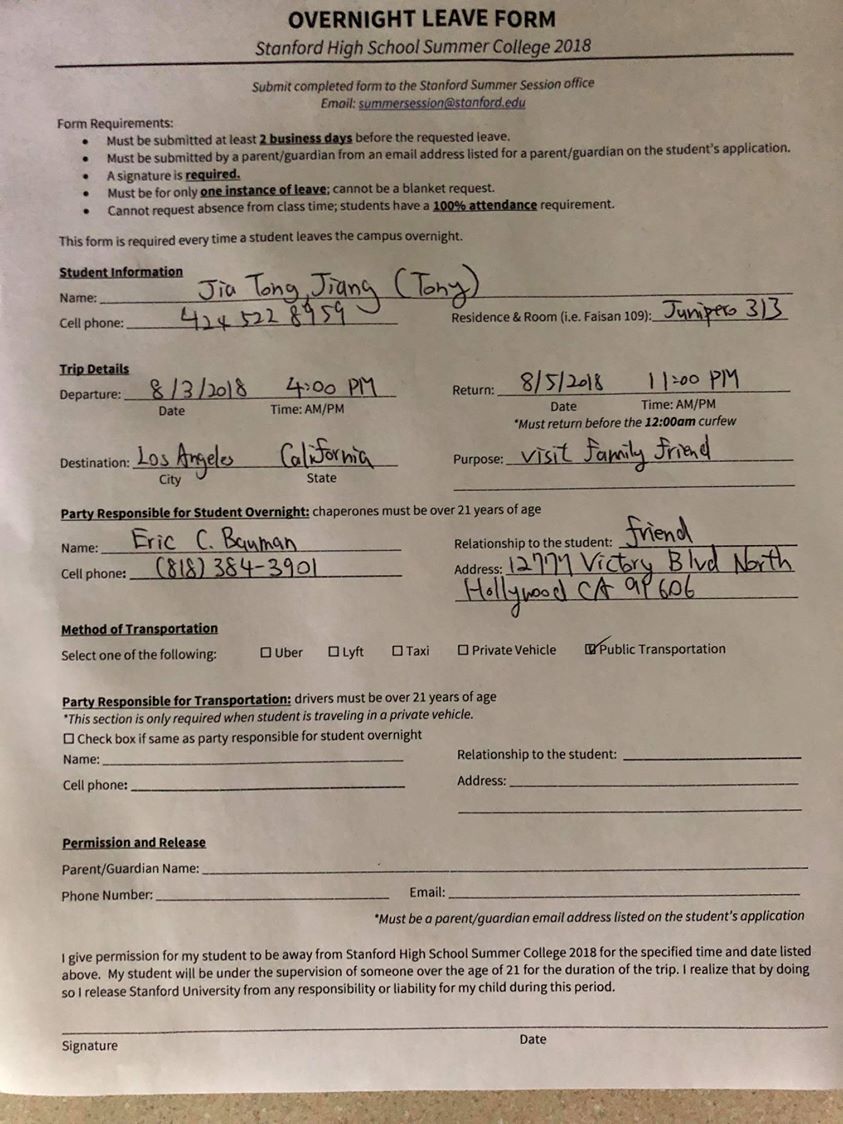 OVERNIGHT LEAVE FORM
Stanford High School Summer College 2018
Submit completed form to the Stanford Summer Session office
Email: summersession@stanford.edu
Form Requirements:
• Must be submitted at least 2 business days before the requested leave.
• Must be submitted by a parent/guardian from an email address listed for a parent/guardian on the student's application.
• A signature is required.
• Must be for only one instance of leave; cannot be a blanket request.
• Cannot request absence from class time; students have a 100% attendance requirement.
This form is required every time a student leaves the campus overnight.
Student Information
Name: Jia Tong Jiang (Tony)
Cell phone: 424 522 8959 Residence & Room (i.e. Faisan 109): Junipero 313
Trip Details
Departure: 8/3/2018 4:00 PM Return: 8/5/2018 11:00 PM
Date Time: AM/PM Date Time: AM/PM
*Must return before the 12:00am curfew
Destination: Los Angeles California Purpose: visit family friend
City State
Party Responsible for Student Overnight: chaperones must be over 21 years of age
Name: Eric C. Bauman Relationship to the student: friend
Cell phone: (818) 384-3901 Address: 12777 Victory Blvd North
Hollywood CA
Method of Transportation
Select one of the following: ☐ Uber ☐ Lyft ☐ Taxi ☐ Private Vehicle ☑ Public Transportation
Party Responsible for Transportation: drivers must be over 21 years of age
*This section is only required when student is traveling in a private vehicle.
☐ Check box if same as party responsible for student overnight
Name: Relationship to the student:
Cell phone: Address:
Permission and Release
Parent/Guardian Name:
Phone Number: Email:
*Must be a parent/guardian email address listed on the student's application
I give permission for my student to be away from Stanford High School Summer College 2018 for the specified time and date listed
above. My student will be under the supervision of someone over the age of 21 for the duration of the trip. I realize that by doing
so I release Stanford University from any responsibility or liability for my child during this period.
Signature Date